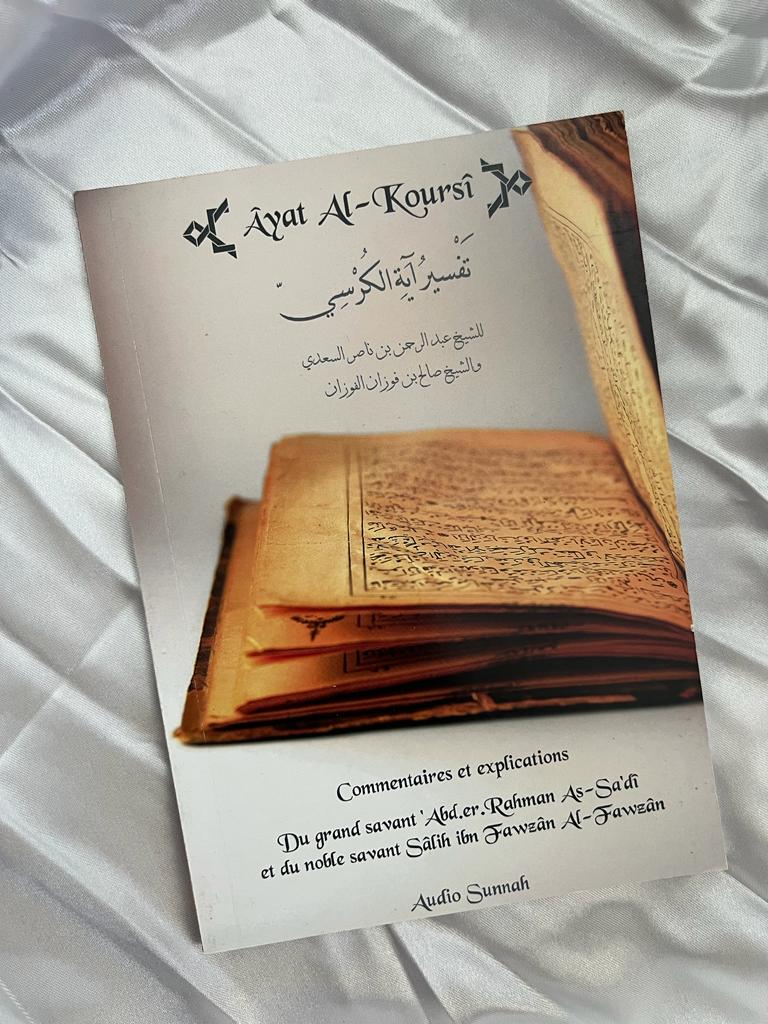 Âyat Al-Koursî
تَفْسِيرُ آيَةِ الكُرْسِيّ
للشيخ عبد الرحمن بن ناصر السعدي
والشيخ صالح بن فوزان الفوزان
Commentaires et explications
Du grand savant 'Abd.er.Rahman As-Sa'dî
et du noble savant Sâlih ibn Fawzân Al-Fawzân
Audio Sunnah